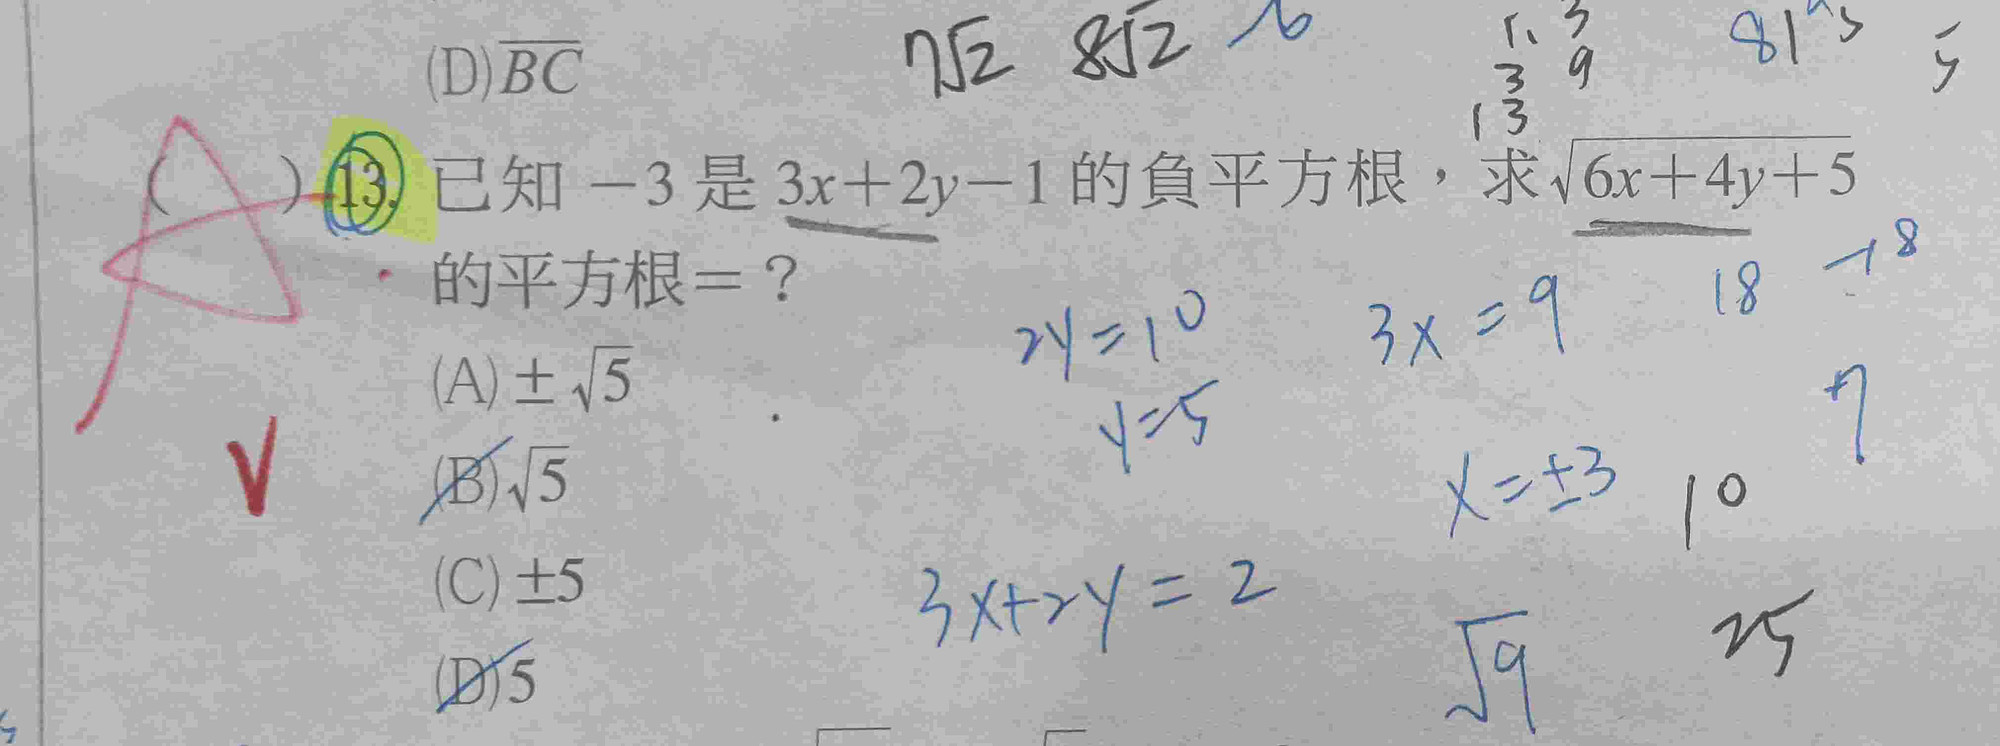 (D) BC
7√2 8√2 6
1. 3
3 9
13
81
5
A
( ) 13. 已知 -3 是 3x+2y-1 的負平方根，求√6x+4y+5
的平方根=？
(A) ±√5
(B) √5
(C) ±5
(D) 5
2y=10
y=5
3x=9
18
x=±3
10
+7
3x+2y=2
√9
25